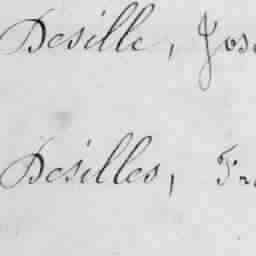 Desille, Jos
Desilles, Fr